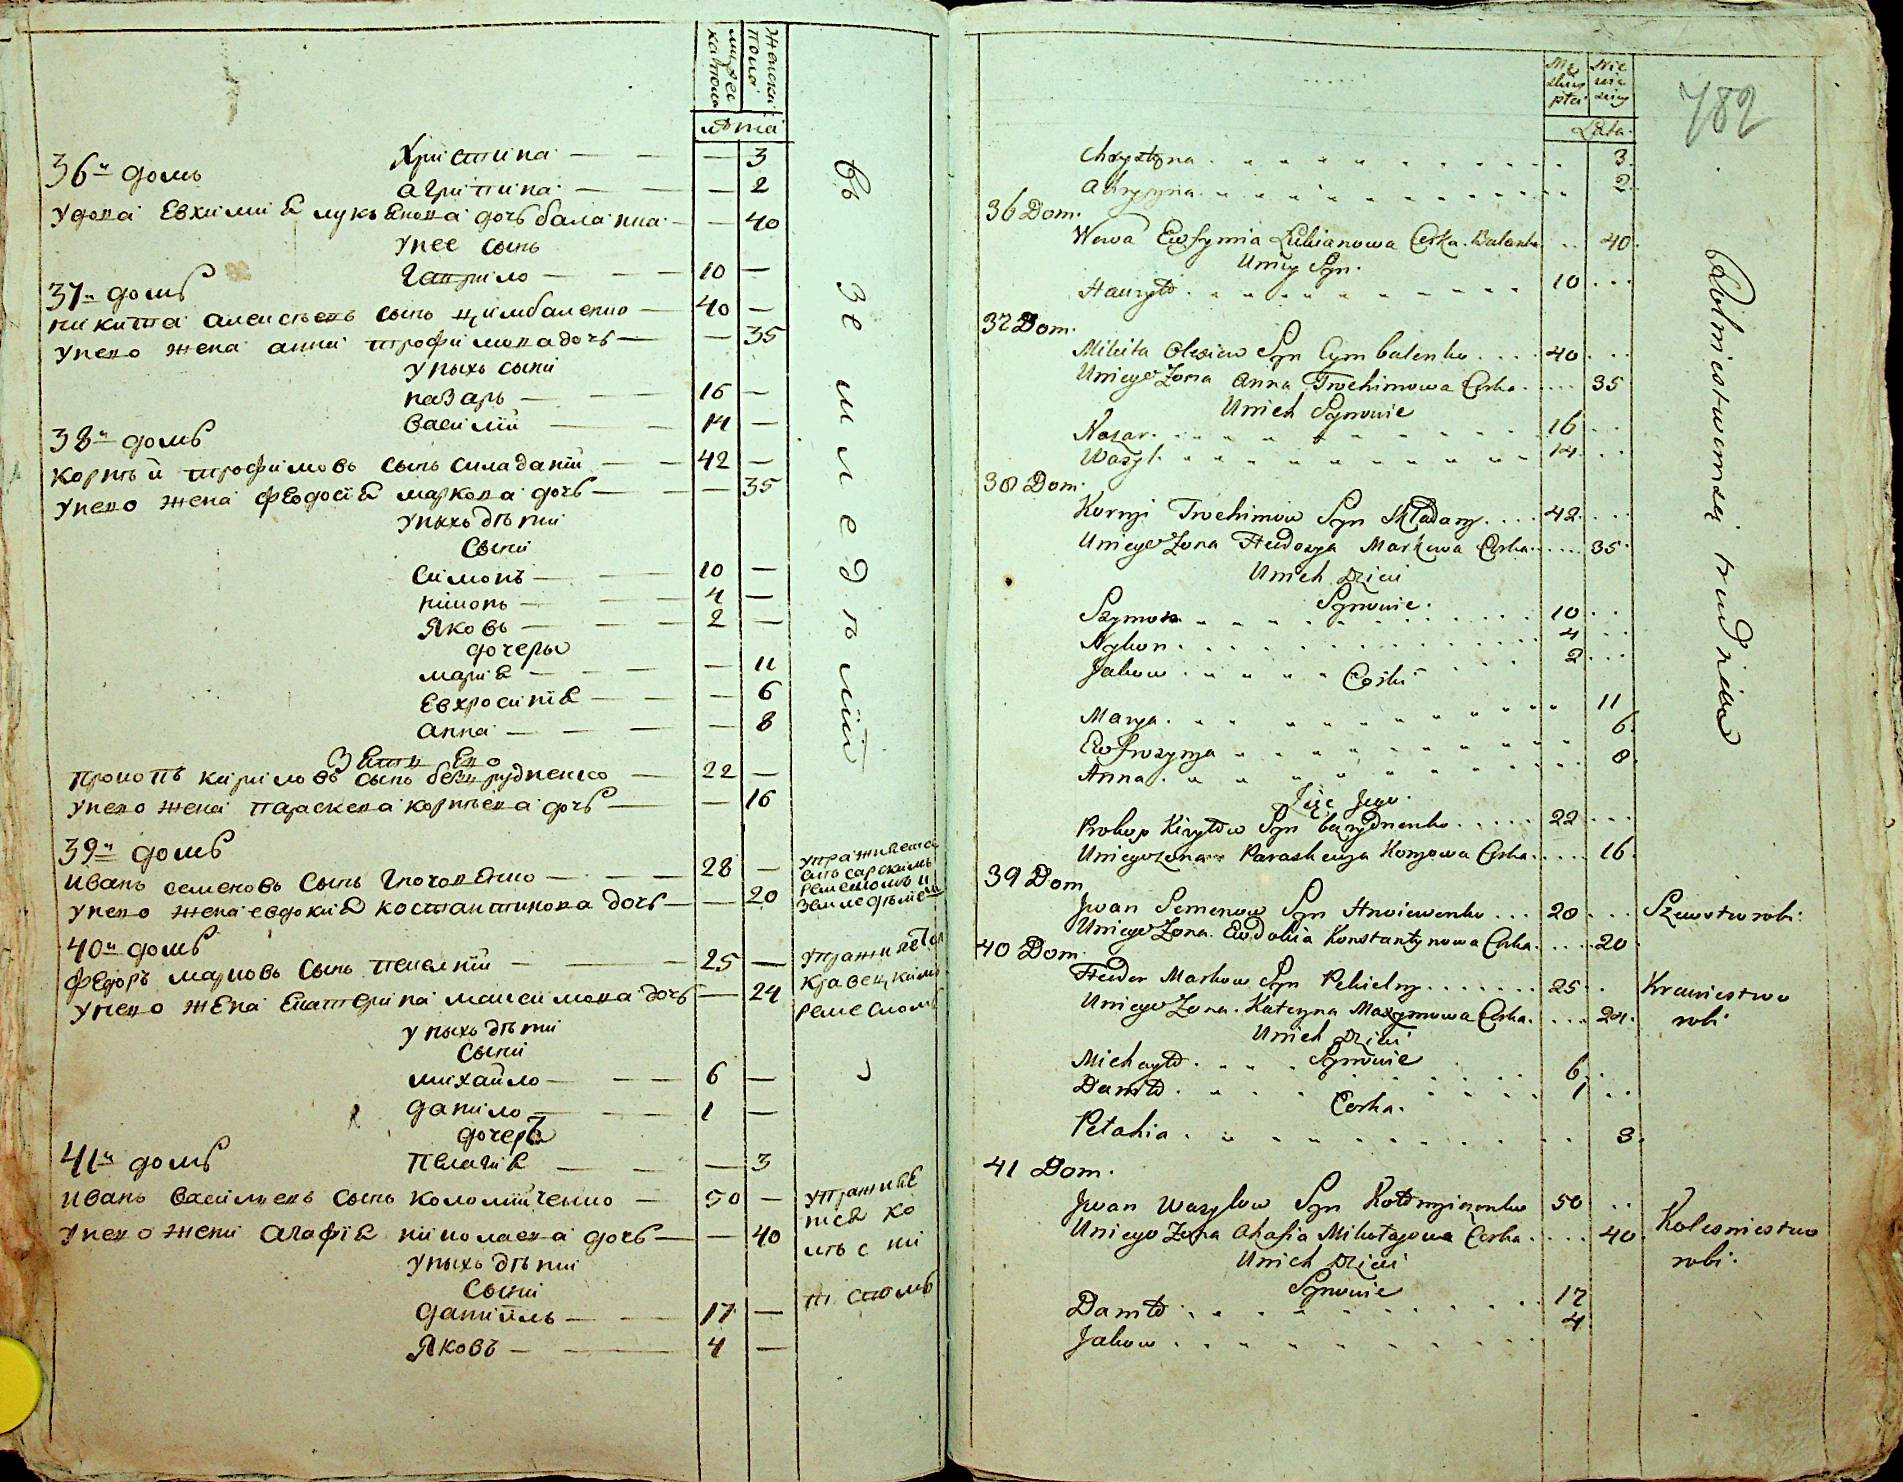 мужеска пола
женска пола
лѣта
Христина — — — 3
36й домъ
агрипина — — — 2
Удова Евхимия лукьянова дочь баланка — — 40
у нее сынъ
Гаврило — — — 10 —
37й домъ
никита алексѣевъ сынъ цимбаленко — 40 —
у него жена анна трофимова дочь — — 35
у нихъ сыни
назаръ — — 16 —
василий — — 14 —
38й домъ
корнѣй трофимовъ сынъ складаний — — 42 —
у него жена феодосия маркова дочь — — 35
у нихъ дѣти
сыни
симонъ — — 10 —
никонъ — — 4 —
яковъ — — — 2 —
дочеры
мария — — — — 11
евхросиния — — — 6
анна — — — — 8
зять его
прокопъ кириловъ сынъ безрудненко — 22 —
у него жена параскева корнѣева дочь — — 16
39й домъ
иванъ семеновъ сынъ гноевенко — — — 28 —
у него жена евдокия костантинова дочь — — 20
40й домъ
федоръ марковъ сынъ пекелний — — 25 —
у него жена екатерина максимова дочь — 24
у нихъ дѣти
сыни
михайло — — — 6 —
данило — — — 1 —
дочеръ
41й домъ
пелагия — — — 3
иванъ васильевъ сынъ коломийченко — 50 —
у него жена агафия николаева дочь — — 40
у нихъ дѣти
сыни
даниилъ — — — 17 —
яковъ — — 4 —
въ земледѣлии
упражняется
ремесломъ и
земледѣлием
упражняется
кравецкимъ
ремесломъ
упражняе
тся ко
лѣсни
тствомъ
782
Męzkiey płci
Niewieściey
Lata
Chrystyna 3
Ahrypina 2
36 Dom.
Wdowa Ewfymia Lukianowa Corka Balanka 40
U niey Syn.
Hawryło 10
37 Dom.
Mikita Olexiew Syn Cymbalenko 40
U niego Zona Anna Trochimowa Corka 35
U nich Synowie
Nazar. 16
Wasyl. 14
38 Dom.
Korniy Trochimow Syn Składany 42
U niego Zona Feodosya Markowa Corka 35
U nich Dzieci
Synowie.
Szymon 10
Nykon 4
Jakow 2
Corki
Marya. 11
Ewfrozyna 6
Anna 8
Zięć Jego.
Prokop Kiryłow Syn Bezrydnenko 22
U niego zona Paraskewya Kornijowa Corka 16
39 Dom
Jwan Semenow Syn Hnoiewenko 28
U niego Zona Ewdokia Konstantynowa Corka 20
Szewstwo robi.
40 Dom.
Feder Markow Syn Pekielny 25
U niego Zona Kateryna Maxymowa Corka 24
Krawiestwo
robi
U nich Dzieci
Synowie
Michayło 6
Daniło 1
Corka.
Pelahia 3.
41 Dom.
Jwan Wasylow Syn Kołomyiczenko 50
U niego Zona Ahafia Mikołajowa Corka 40
Kolesniestwo
robi.
U nich Dzieci
Synowie
Daniło 17
Jakow 4
Rolniestwem się trudnią